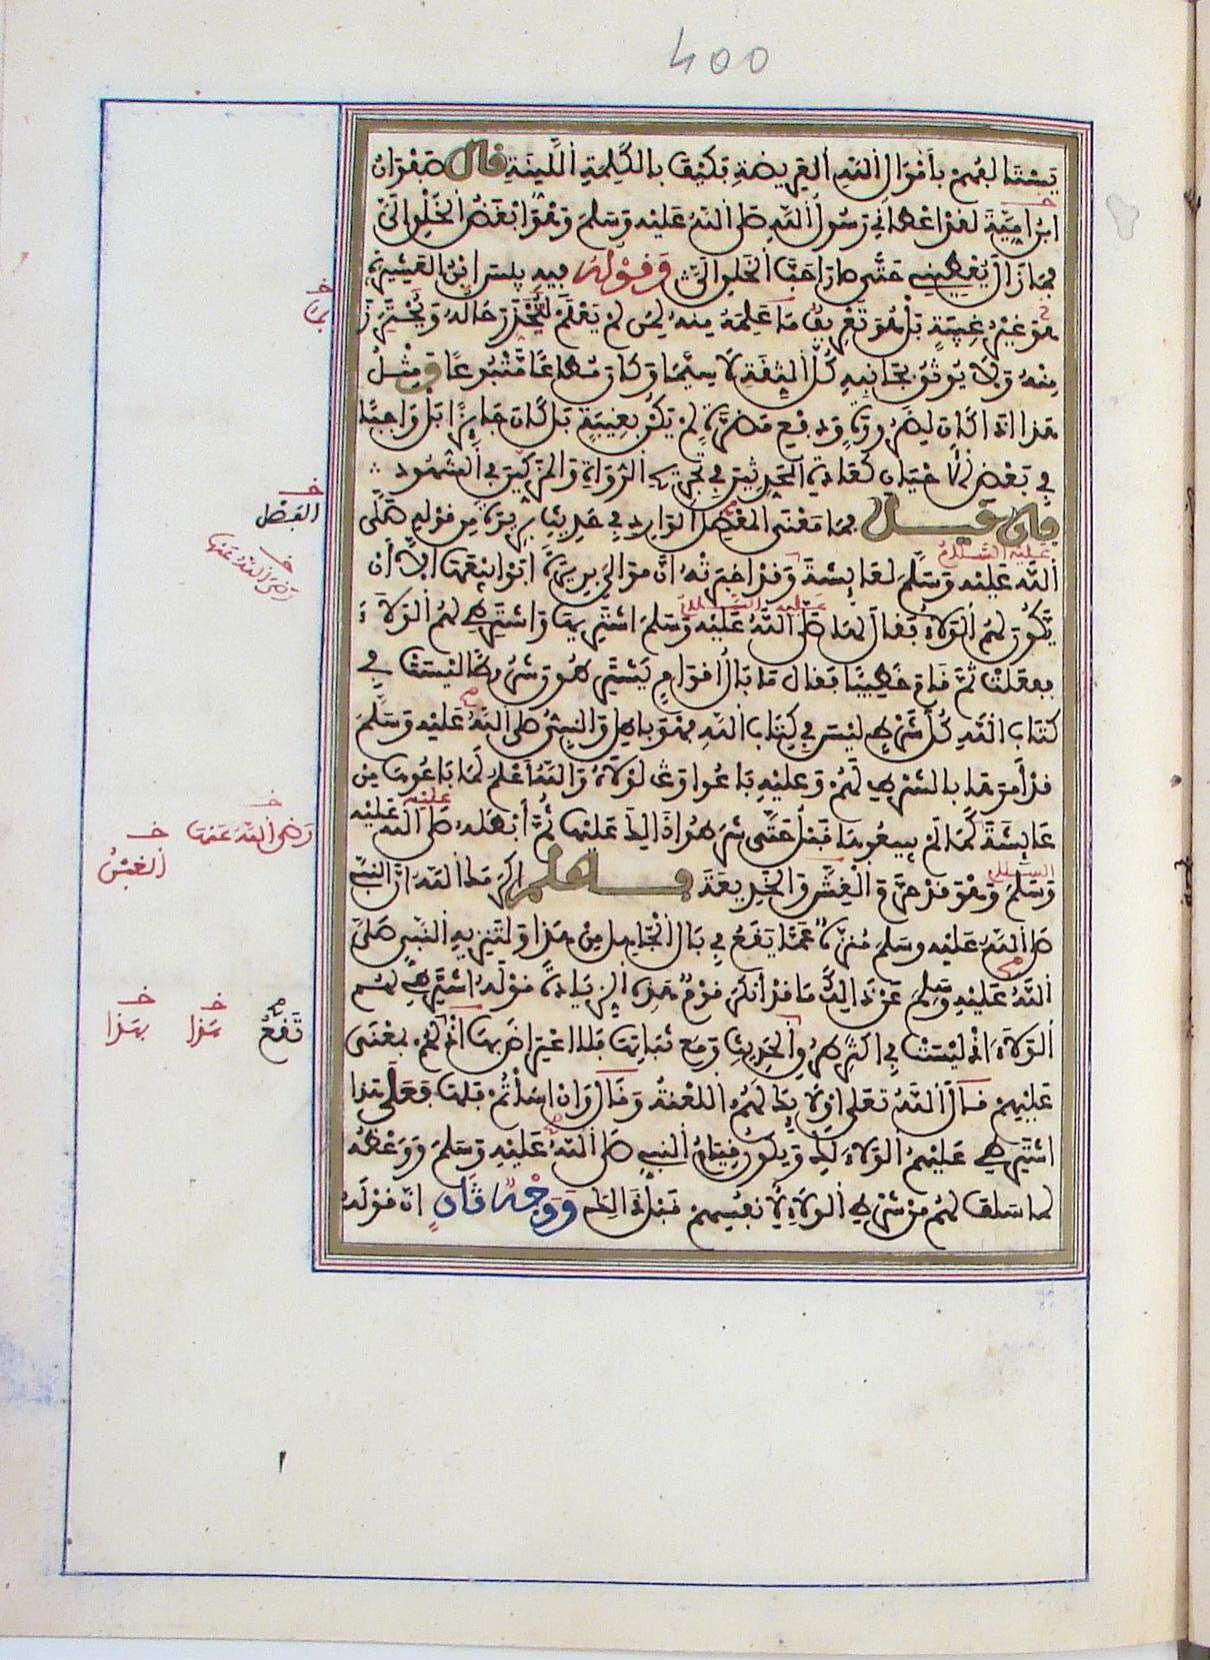 400
يستالفهم بأموال الله العريضة فكيف بالكلمة اللينة قال صفوان
ابن امية لقد اعطاني رسول الله صلى الله عليه وسلم وهو ابغض الخلق الي
فما زال يعطيني حتى صار احب الخلق الي وقوله فيه بيس ابن العشيرة
هو غير غيبة بل هو تعريف ما علمه منه لمن لم يعلم ليحذر حاله ويحترز
منه ولا يوثق بجانبه كل الثقة لا سيما وكان مطاعا متبوعا ومثل
هذا اذا كان لضرورة ودفع مضرة لم يكن بغيبة بل كان جايزا بل واجبا
في بعض الاحيان كعادة المحدثين في تجريح الرواة والمزكين في الشهود
فان قيل فما معنى المعضل الوارد في حديث بريرة من قوله صلى
الله عليه وسلم لعايشة وقد اخبرته ان موالي بريرة ابوا بيعها الا ان
يكون لهم الولاء فقال لها صلى الله عليه وسلم اشتريها واشترطي لهم الولاء
ففعلت ثم قام خطيبا فقال ما بال اقوام يشترطون شروطا ليست في
كتاب الله كل شرط ليس في كتاب الله فهو باطل والنبي صلى الله عليه وسلم
قد أمرها بالشرط لهم وعليه باعوا ولولاه والله أعلم لما باعوها من
عايشة كما لم يبيعوها قبل حتى شرطوا ذلك عليها ثم أبطله صلى الله عليه
وسلم وهو قد حرم الغش والخديعة فاعلم اكرمك الله ان النبي
صلى الله عليه وسلم منزه عما يقع في بال الجاهل من هذا ولتنزيه النبي صلى
الله عليه وسلم عن ذلك ما قد انكر قوم هذه الزيادة قوله اشترطي لهم
الولاء اذ ليست في اكثر طرق الحديث ومع ثباتها فلا اعتراض بها اذ لهم بمعنى
عليهم قال الله تعلى اولائك لهم اللعنة وقال وان اسأتم فلها فعلى هذا
اشترطي عليهم الولاء لك ويكون قيام النبي صلى الله عليه وسلم ووعظه
لما سلف لهم من شرط الولاء لانفسهم قبل ذلك ووجه ثان ان قوله
الفضل
رضي الله عنها
عليه السلام
عليه السلام
رضي الله عنها
الغش
عليه السلام
تقع
هذا
بهذا